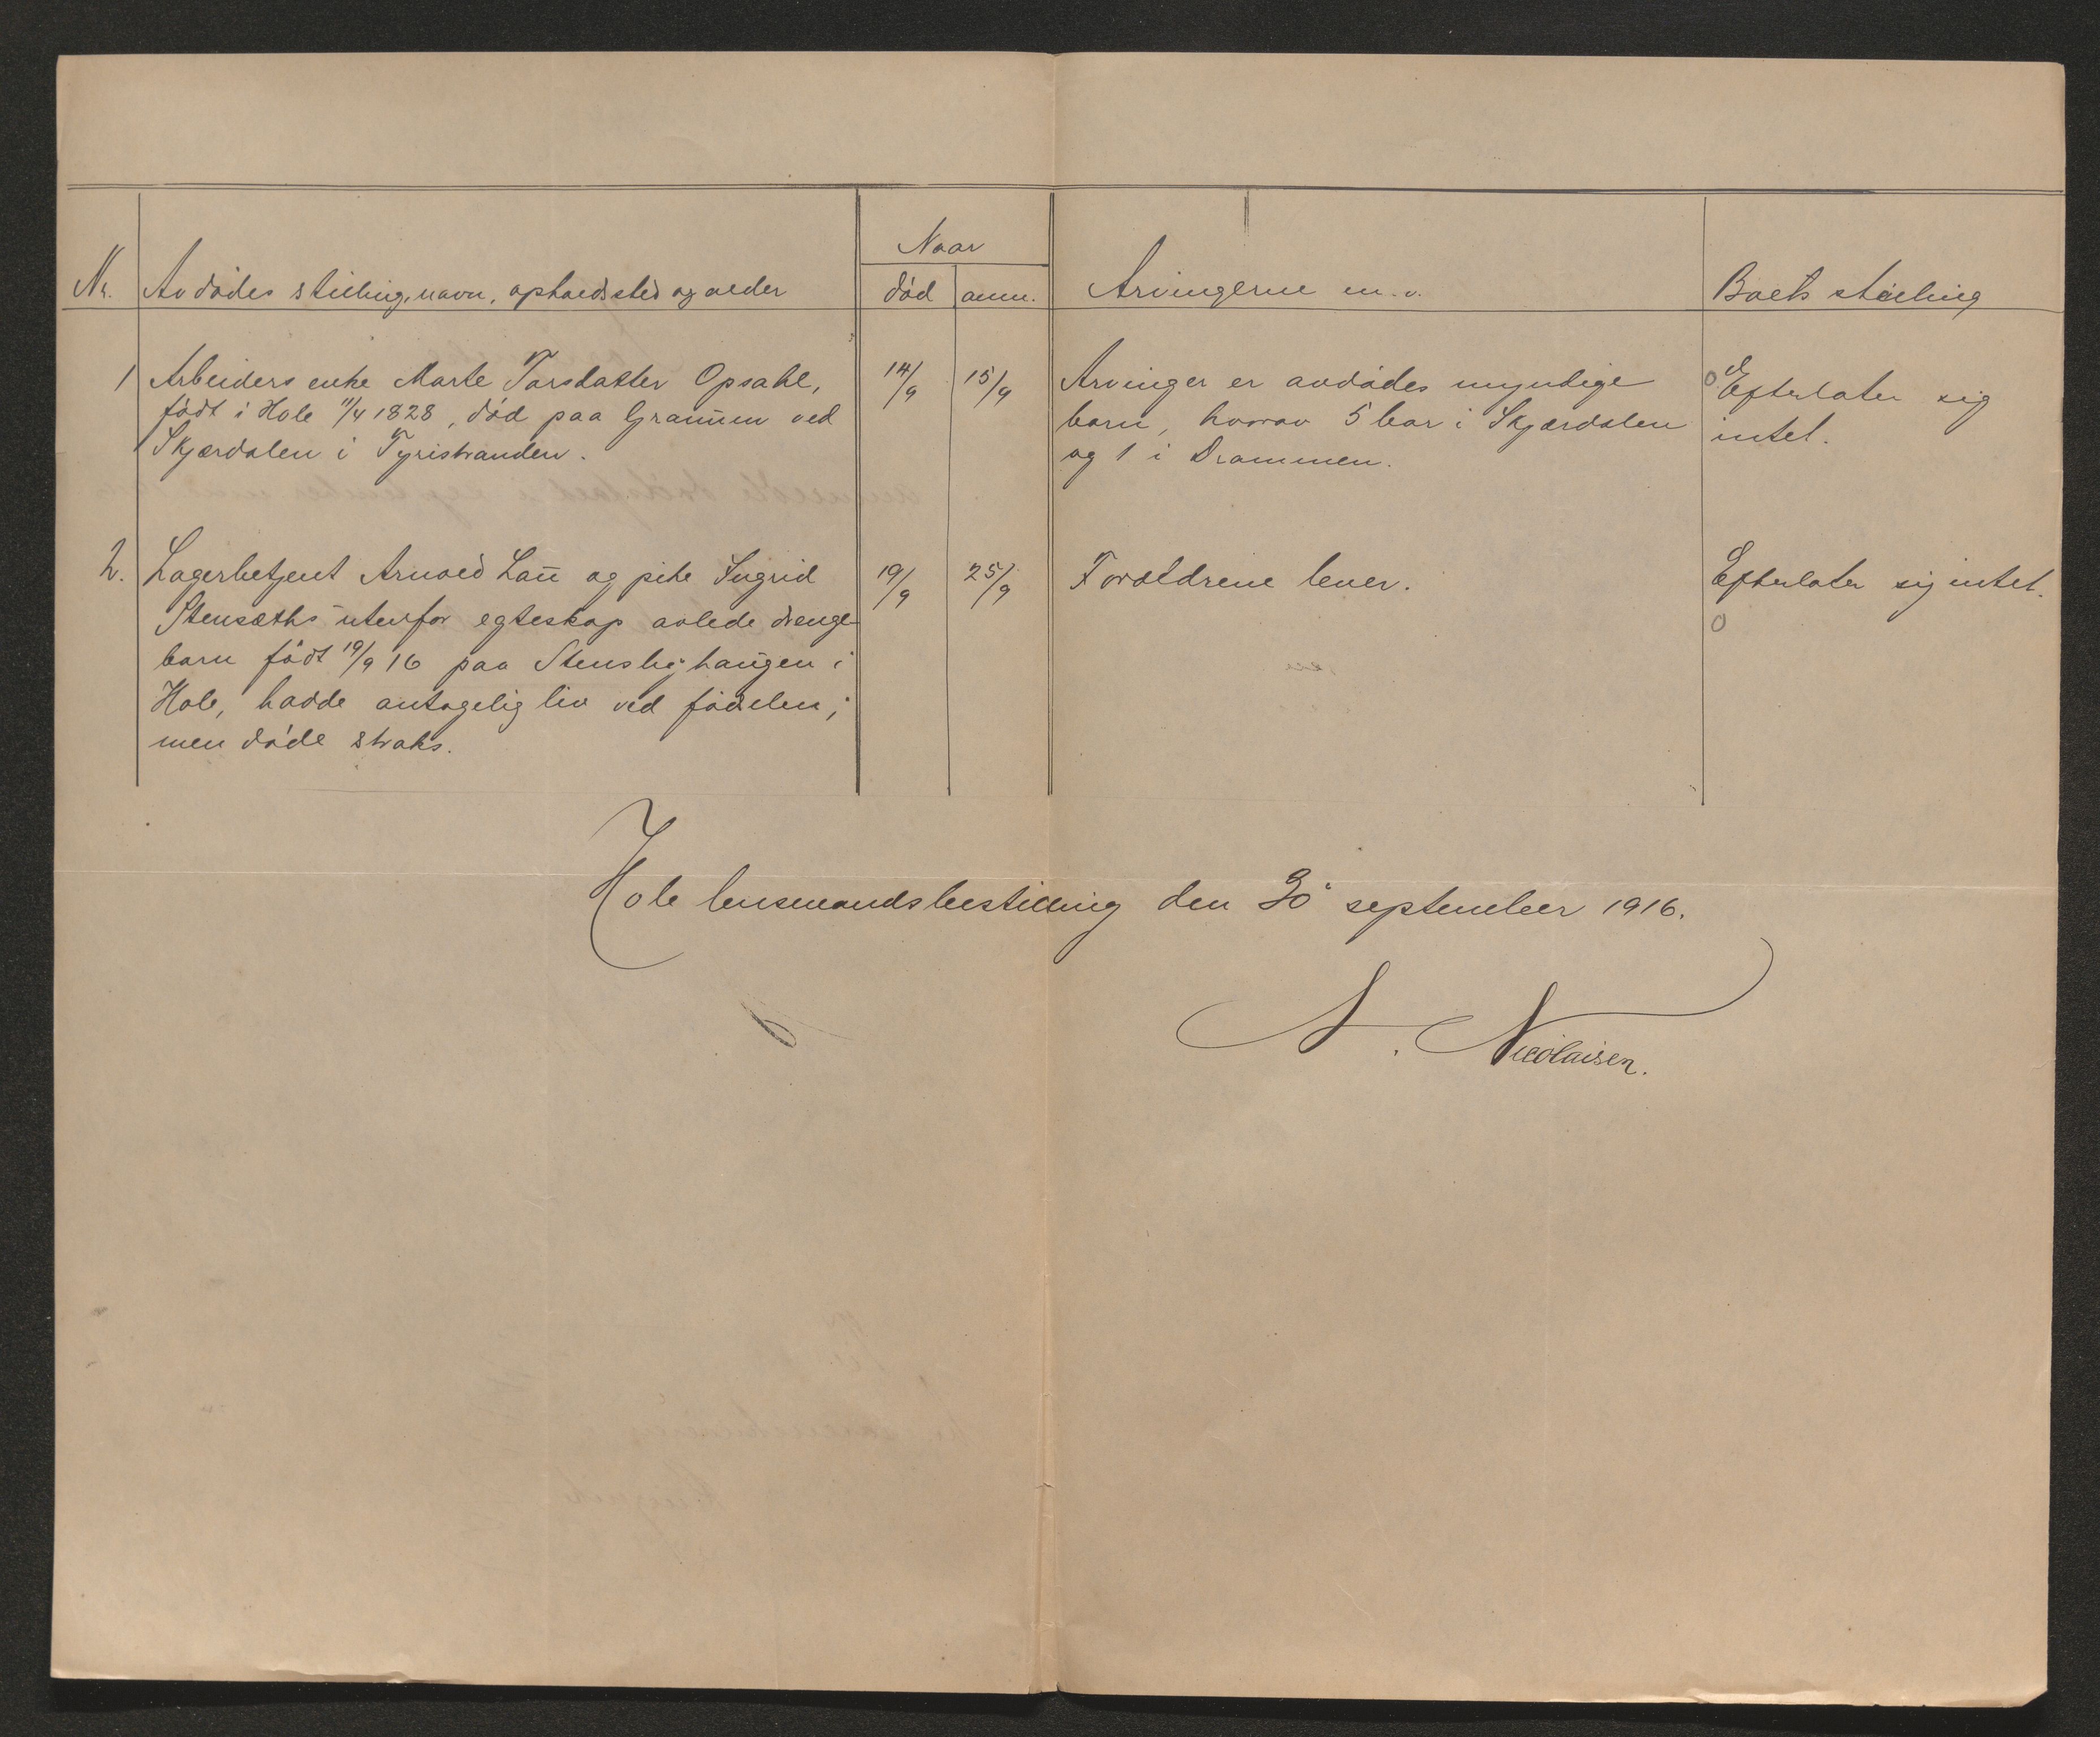 Naar
Nr. Avdødes stilling, navn, opholdssted og alder død anm. Arvingerne m.v. Boets stilling
1 Arbeiders enke Marte Torsdatter Opsahl, 14/9 15/9 Arvinger er avdødes myndige Efterlater sig
født i Hole 11/4 1828, død paa Grannen ved barn, hvorav 5 bor i Skjærdalen intet.
Skjærdalen i Tyristranden. og 1 i Drammen.
2. Lagerbetjent Arnved Lau og pike Ingrid 19/9 25/9 Forældrene lever. Efterlater sig intet.
Stensæths utenfor egteskap avlede drenge- 0
barn født 19/9 16 paa i
Hole, hadde antagelig liv ved fødselen,
men døde straks.
Hole lensmandsbestilling den 30 september 1916.
N. Nicolaisen.